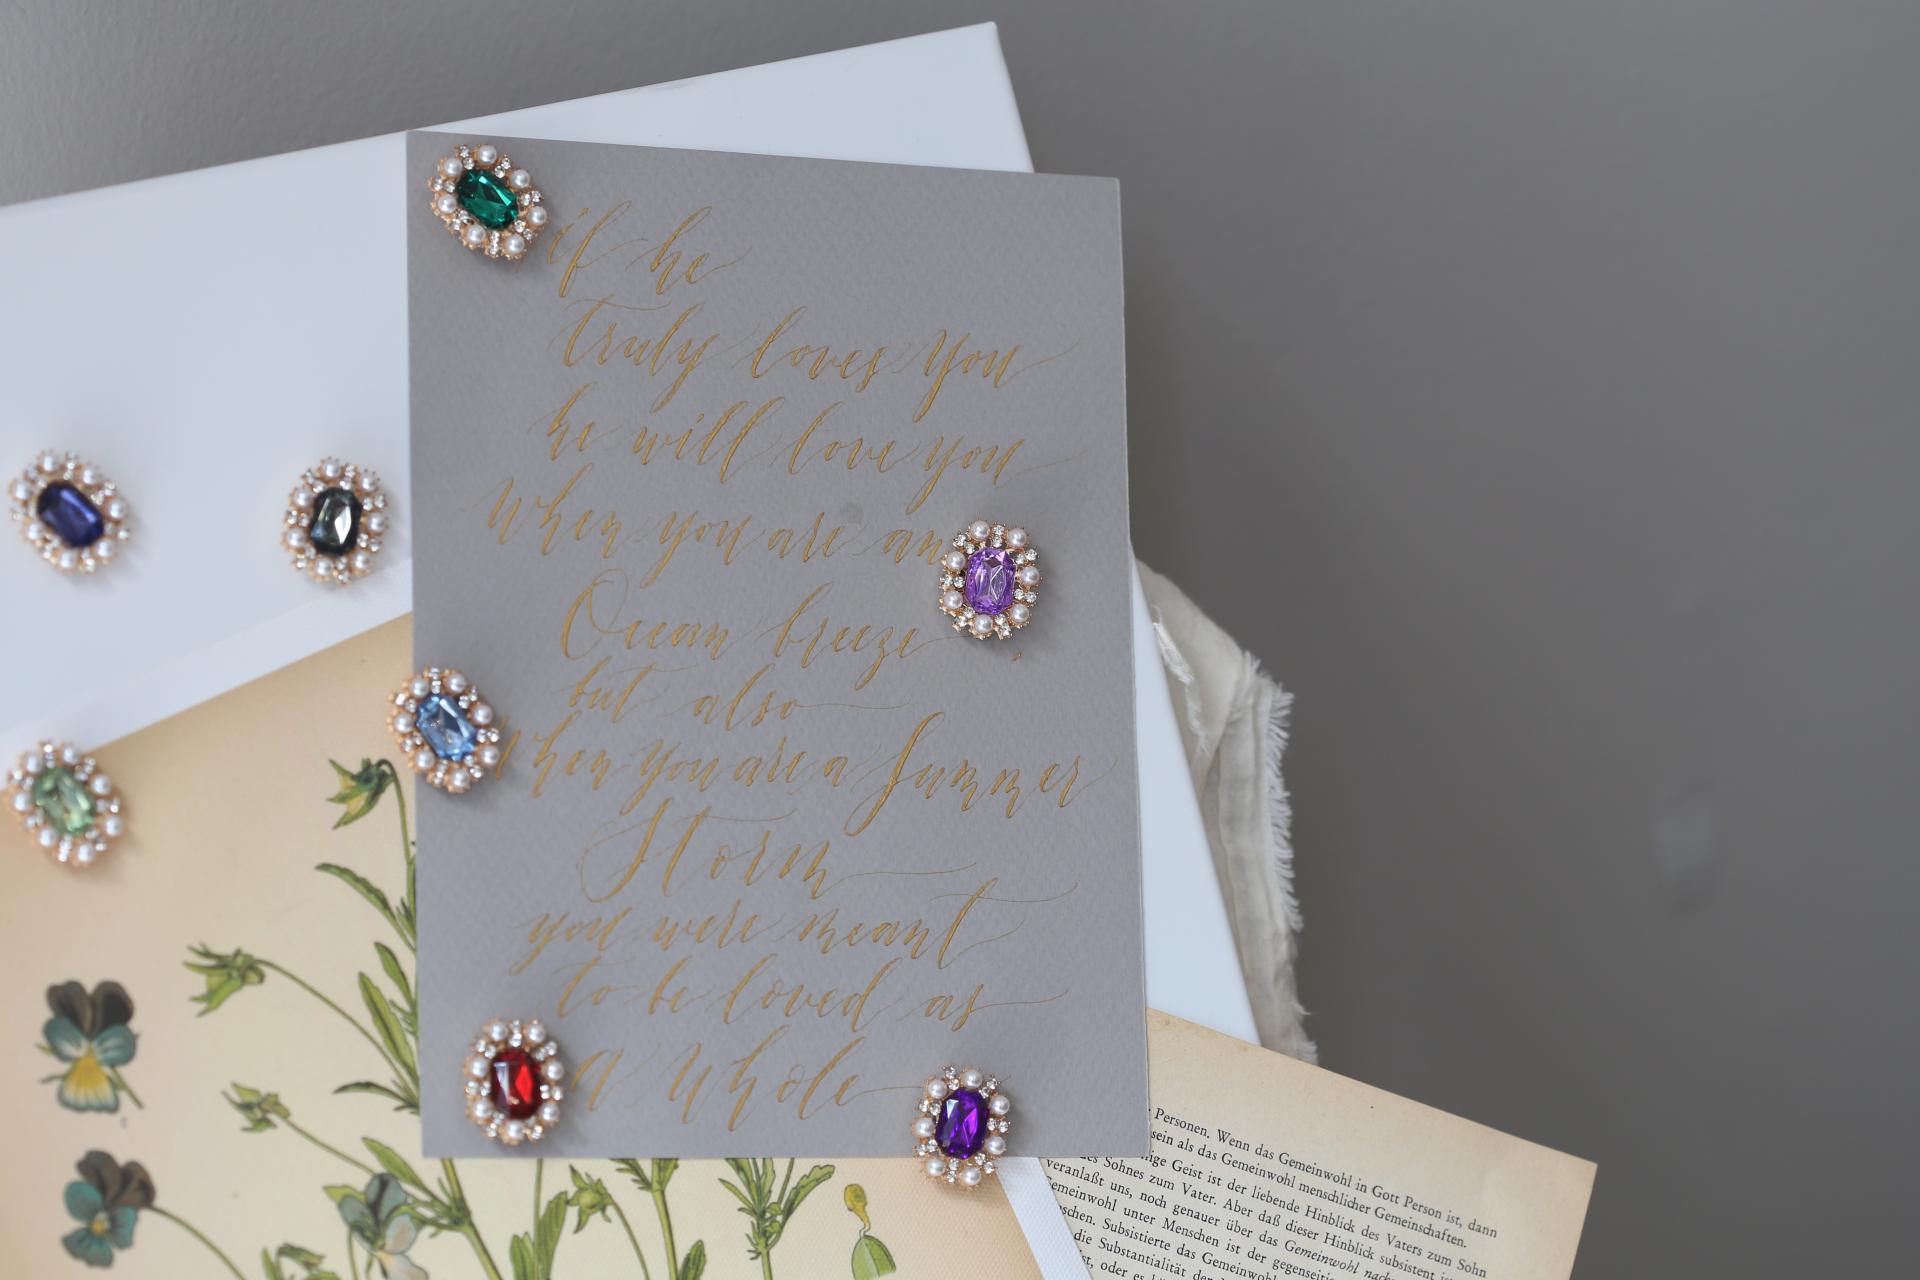 if he
truly loves you
he will love you
when you are an
Ocean breeze
but also
when you are a Summer
Storm
you were meant
to be loved as
a whole
Personen. Wenn das Gemeinwohl in Gott Person ist, dann
sein als das Gemeinwohl menschlicher Gemeinschaften.
Geist ist der liebende Hinblick des Vaters zum Sohn
des Sohnes zum Vater. Aber daß dieser Hinblick subsistent
veranlaßt uns, noch genauer über das Gemeinwohl nach
Gemeinwohl unter Menschen ist der
Subsistierte das
die Substantialität der
oder es